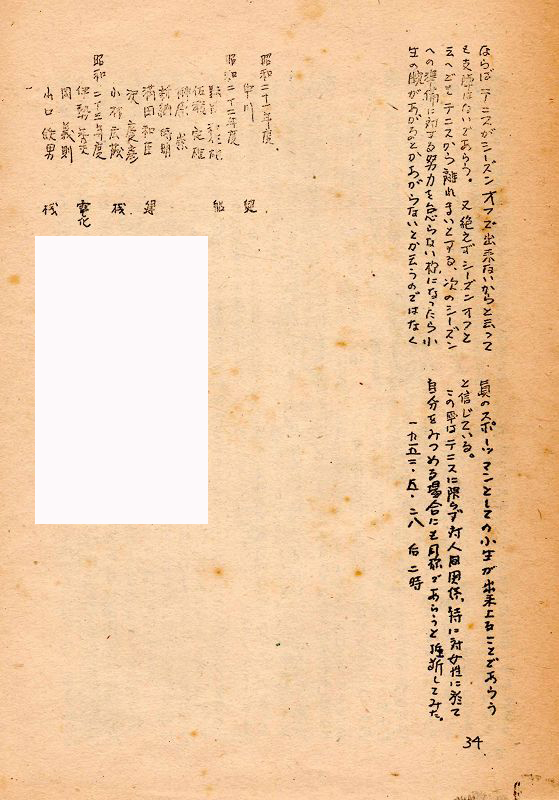 ならばテニスがシーズンオフで出来ないからと云って
も支障はないであらう。又絶えずシーズンオフと
云へどもテニスから離れまいとする、次のシーズン
への準備に対する努力を怠らない様になったら小
生の腕があがるとかあがらないとか云うのではなく
真のスポーツマンとしての小生が出来上ることであらう
と信じている。
この事はテニスに限らず対人間関係、特に対女性に於て
自分をみつめる場合にも同様があらうと推断してみた。
一九五二・五・二八 后二時
昭和二十一年度
中川
昭和二十二年度 船
佐藤 定雄
藤原 崇
新納 時明
満田 和臣
沢 慶彦
小林 茂 機
昭和二十三年度
伊勢 電化
岡 義則
山口 欽男 機
34